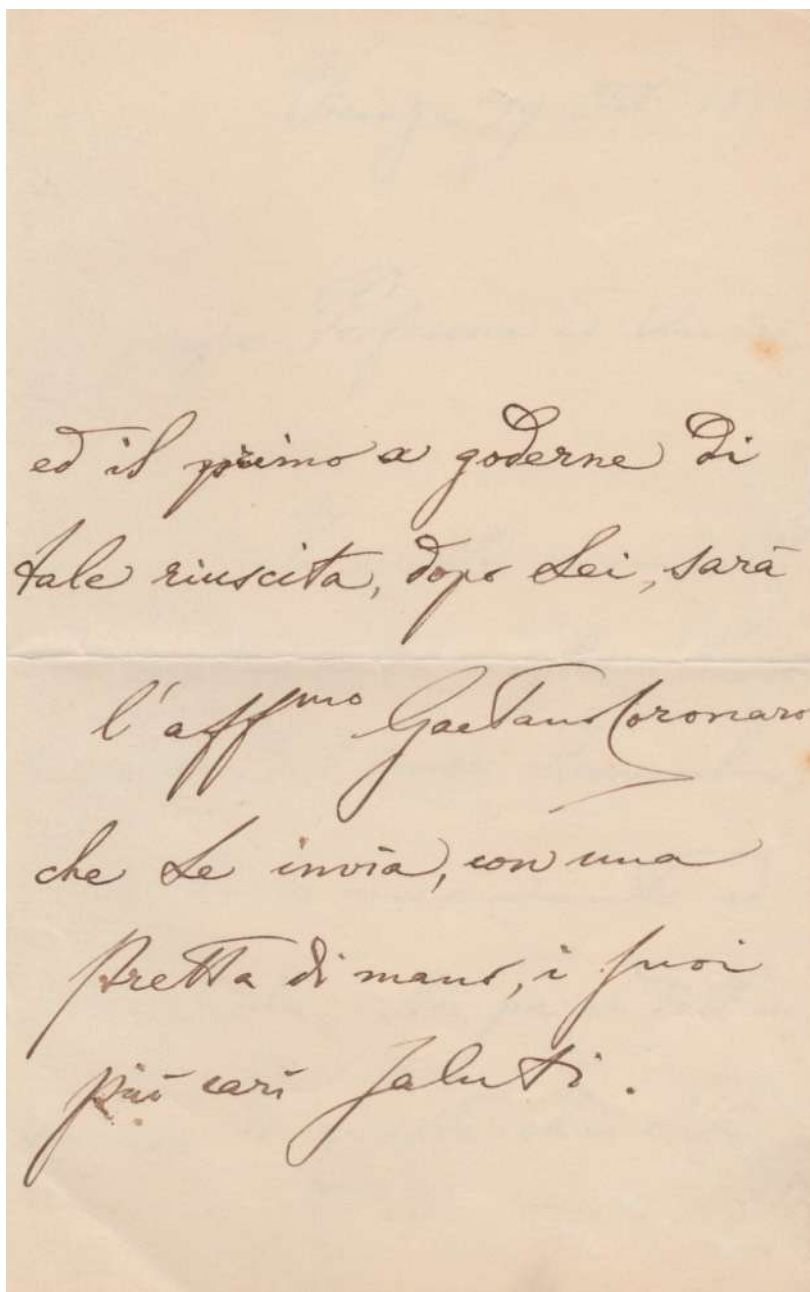 ed il primo a goderne di
tale riuscita, dopo Lei, sarà
l'aff.mo Gaetano Coronaro
che Le invia, con una
stretta di mano, i suoi
più cari saluti.